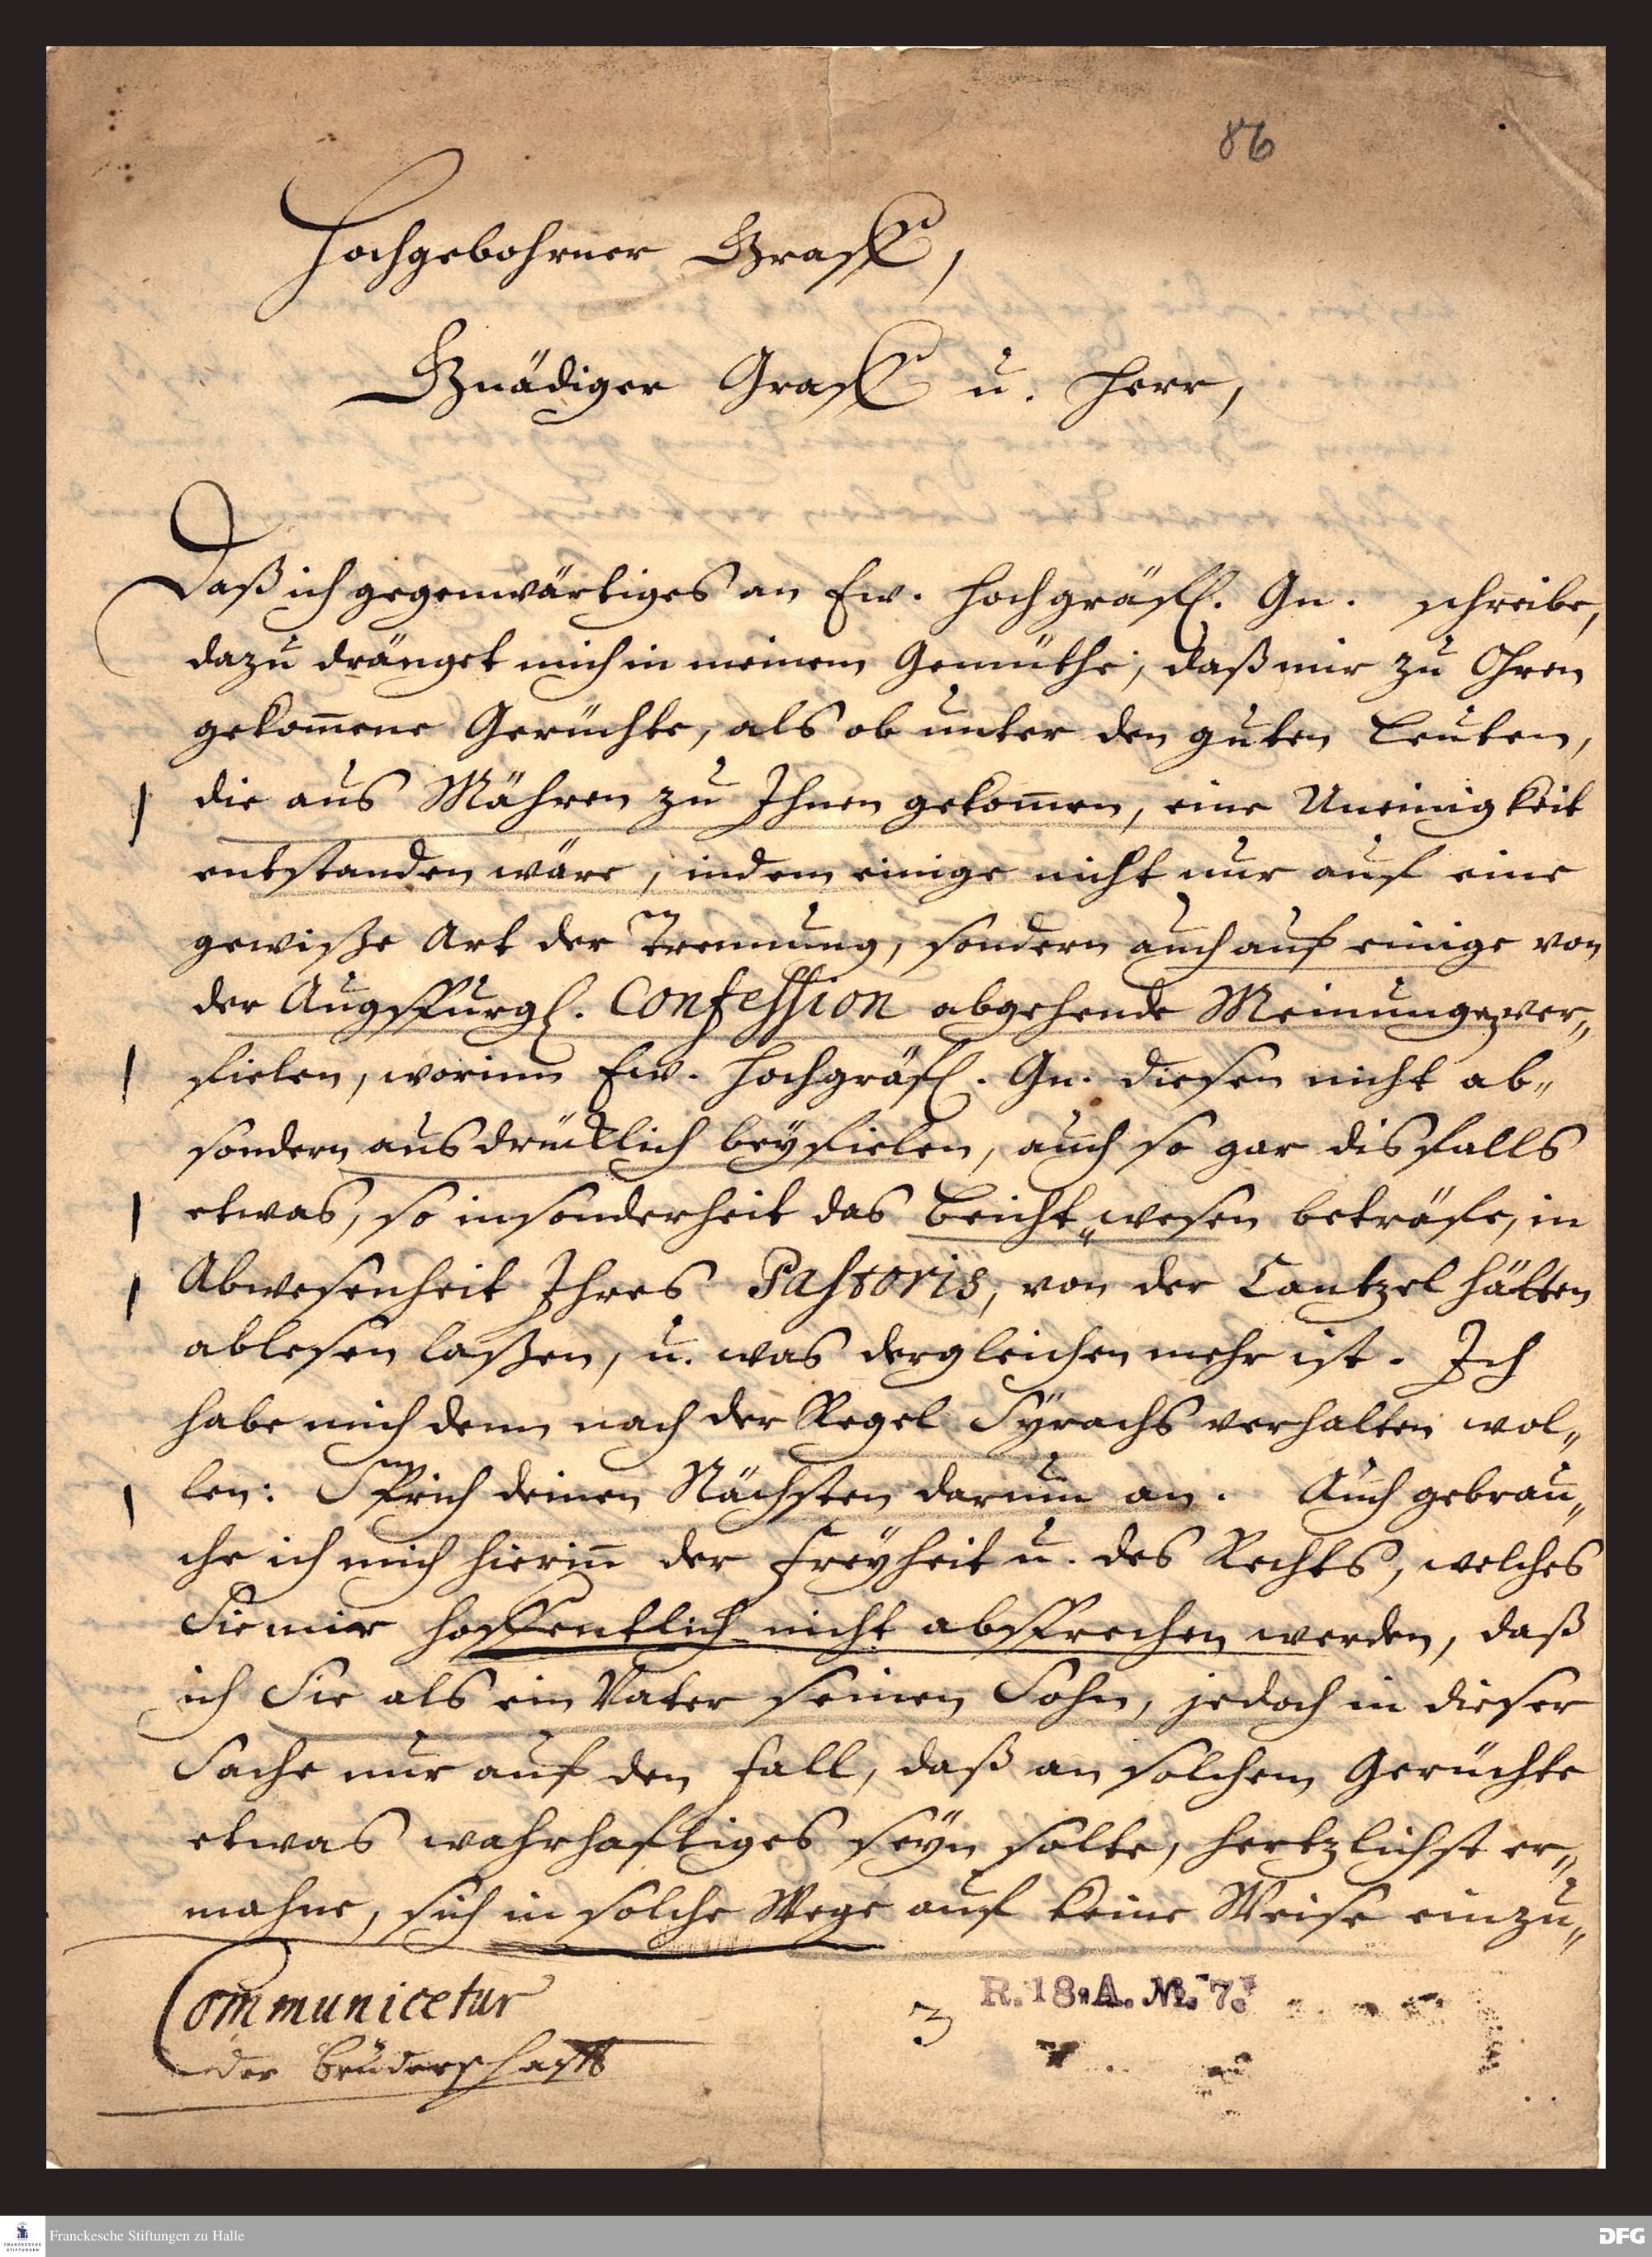 86
Hochgebohrner Graff,
Gnädiger Graff u. Herr,
Daß ich gegenwärtiges an Ew. Hochgräfl. Gn. schreibe,
dazu dränget mich in meinem Gemüthe, daß mir zu Ohren
gekom̄ene Gerüchte, als ob unter den guten Leuten,
die aus Mähren zu Ihnen gekom̄en, eine Uneinigkeit
entstanden wäre, indem einige nicht nur auf eine
gewiße Art der Trennung, sondern auch auf einige von
der Augspurgl. Confession abgehende Meinungen ver„
fielen, worinn Ew. Hochgräfl. Gn. diesen nicht ab„
sondern ausdrücklich beyfielen, auch so gar disfalls
etwas, so insonderheit das Beicht„wesen beträfe, in
Abwesenheit Ihres Pastoris, von der Cantzel hätten
ablesen laßen, u. was dergleichen mehr ist. Ich
habe mich denn nach der Regel Syrachs verhalten wol„
len: Sprich deinen Nächsten darum an. Auch gebrau„
che ich mich hierin̄ der Freyheit u. des Rechts, welches
Sie mir hoffentlich nicht absprechen werden, daß
ich Sie als ein Vater seinen Sohn, jedoch in dieser
Sache nur auf den Fall, daß an solchem Gerüchte
etwas wahrhaftiges seyn solte, hertzlichst er„
mahne, sich in solche Wege auf keine Weise einzu„
Communicetur
der Brüderschafft
3
R. 18. A. M. 7.
Franckesche Stiftungen zu Halle
FRANCKESCHE
STIFTUNGEN
DFG